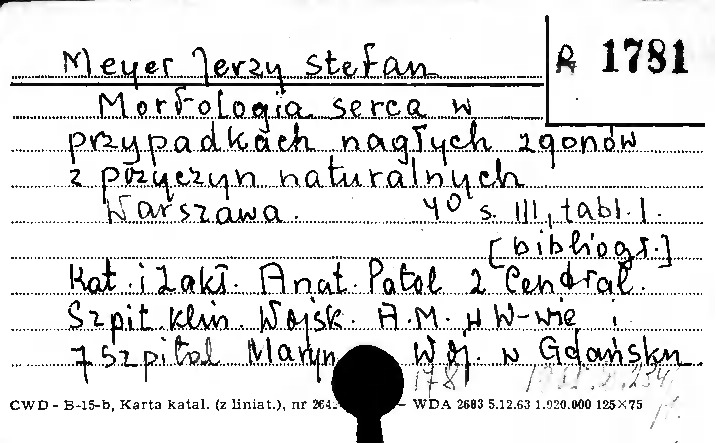 R 1781
Meyer Jerzy Stefan
Morfologia serca w
przypadkach nagłych zgonów
z przyczyn naturalnych
Warszawa. 4° s. 111, tabl. 1.
[bibliogr.]
Kat. i Zakł. Anat. Patol 2 Central.
Szpit. Klin. Wojsk. A.M. w W-wie i
7 Szpital Maryn Woj. w Gdańsku
1781
CWD - B-15-b, Karta katal. (z liniat.), nr 264 - WDA 2683 5.12.63 1.920.000 125×75